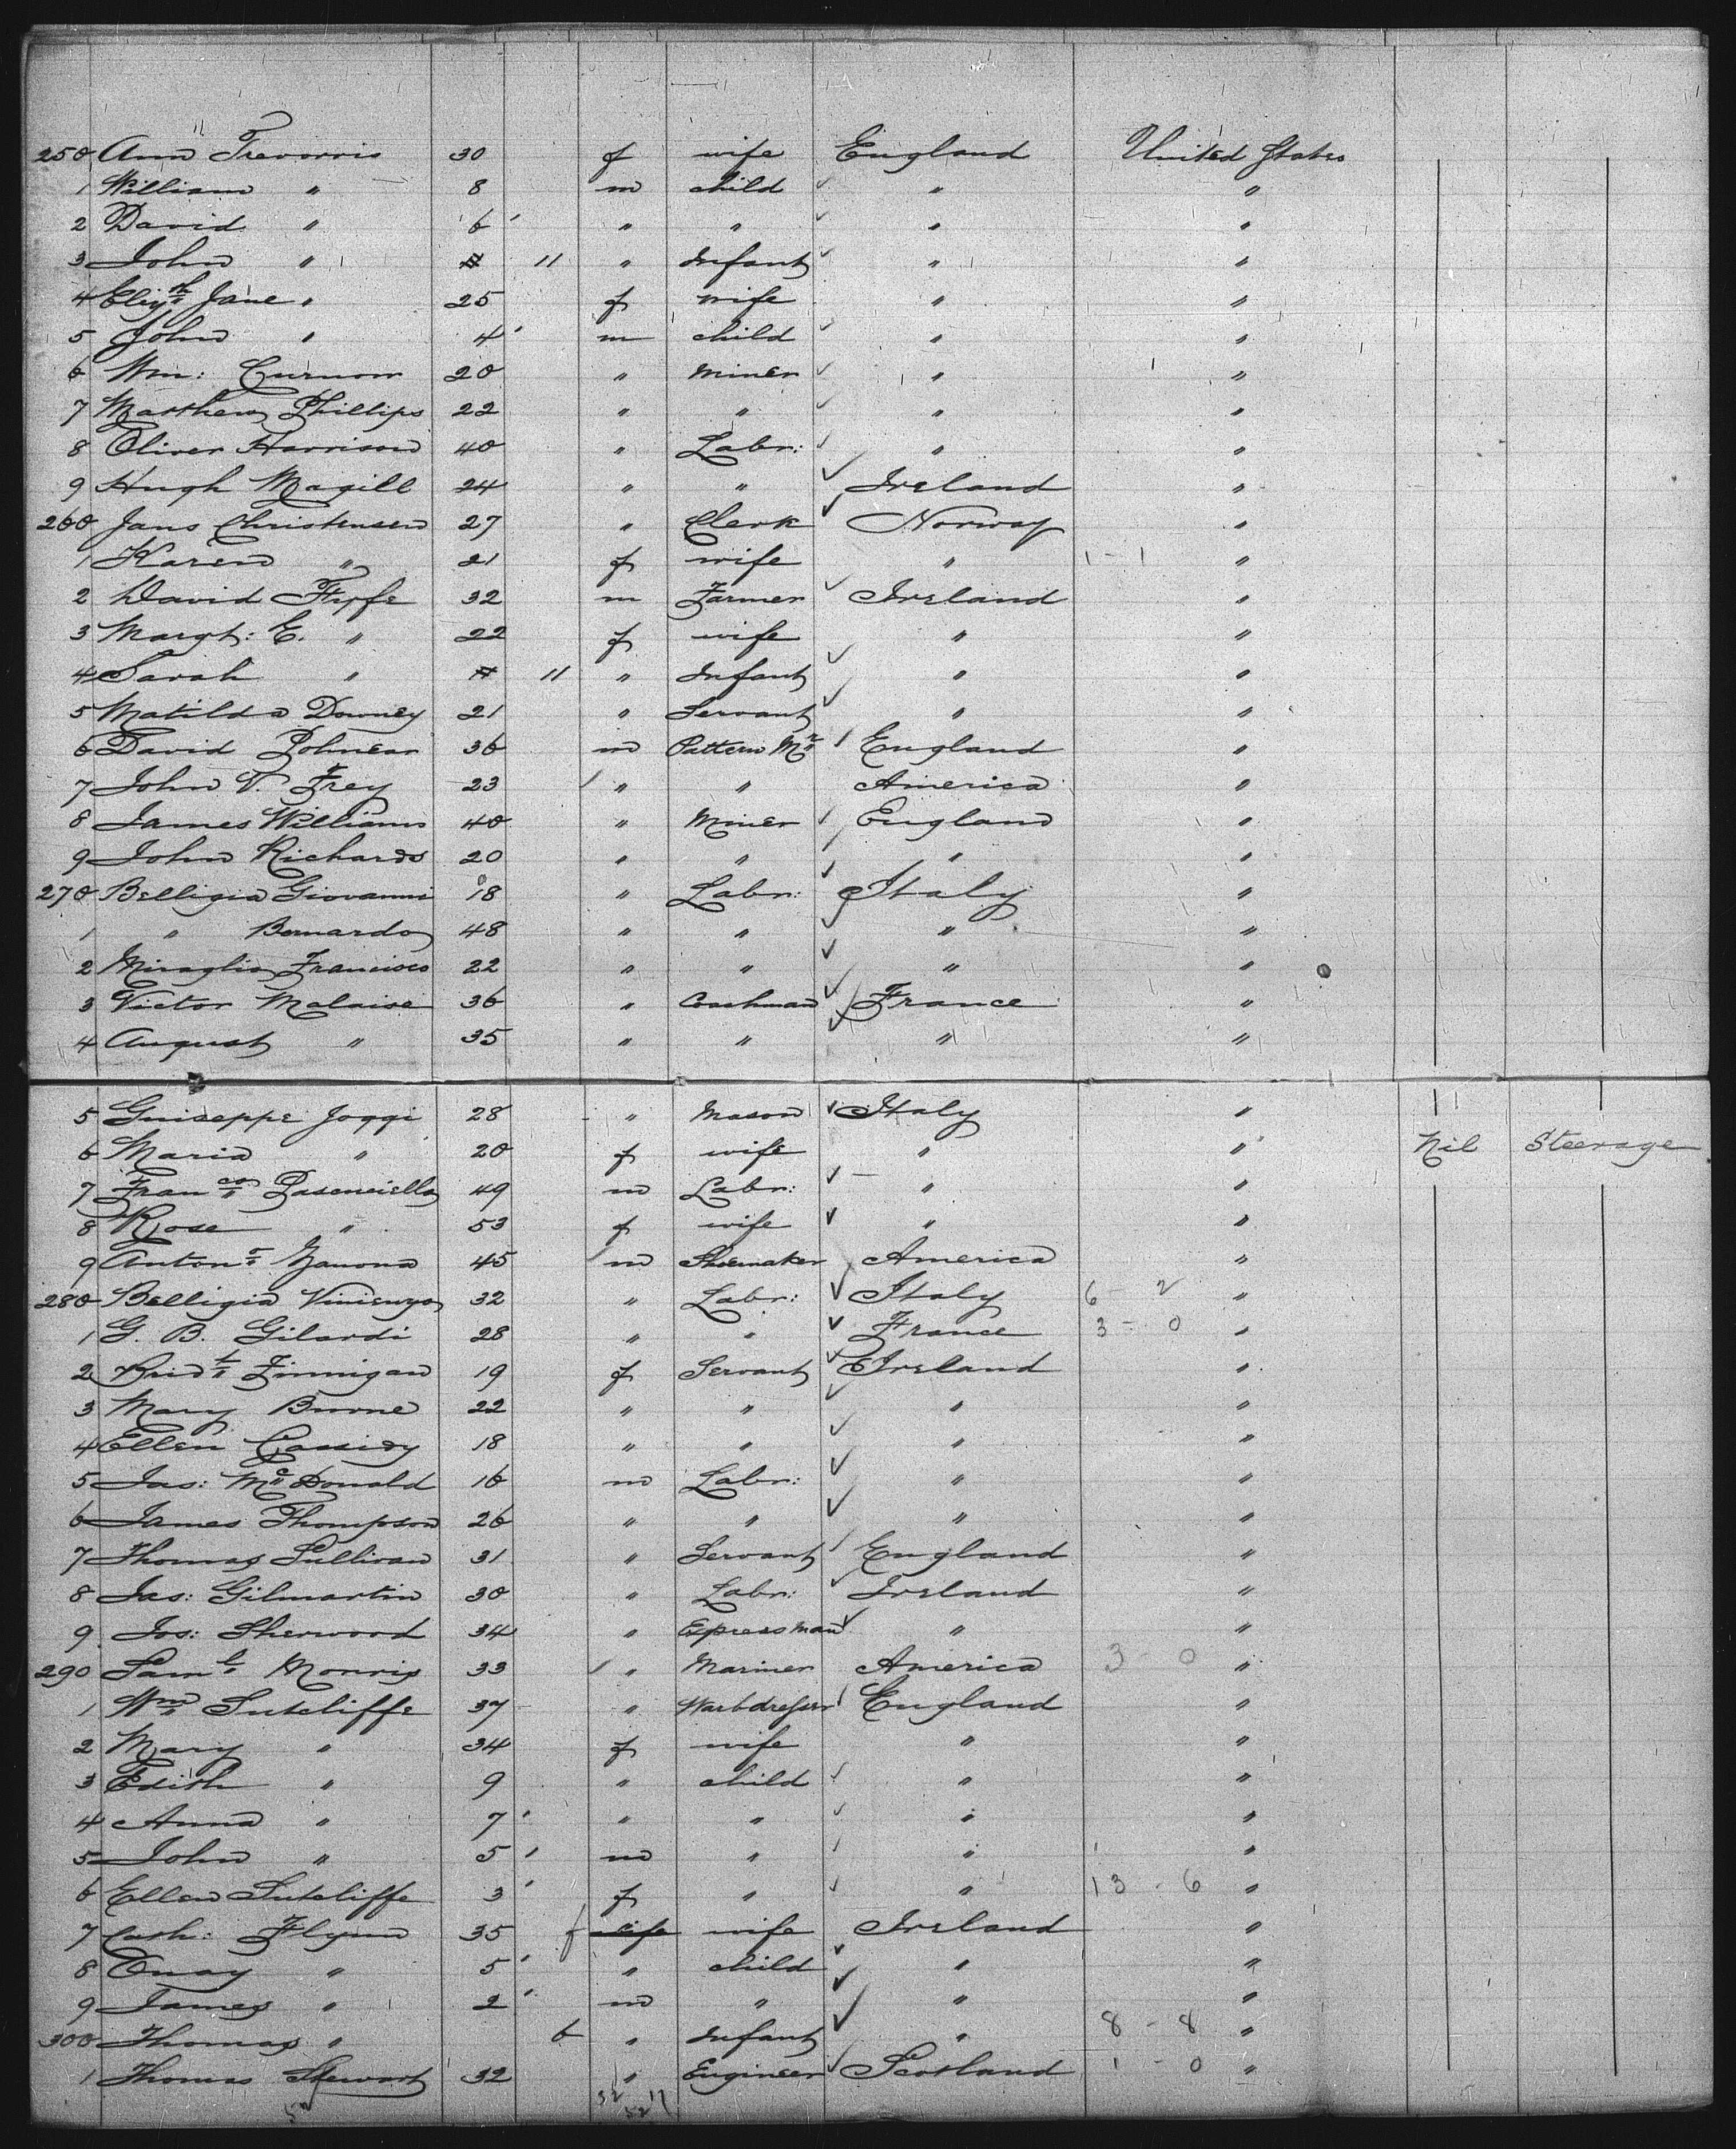 250 Ann Trevorris 30 f wife England United States
1 William " 8 m child " "
2 David " 6 " " " "
3 John " 11 " Infant " "
4 Elizth Jane " 25 f wife " "
5 John " 4 m child " "
6 Wm: Curnow 20 " Miner " "
7 Matthew Phillips 22 " " " "
8 Oliver Harrison 40 " Labr: " "
9 Hugh Magill 24 " " Ireland "
260 Jans Christensen 27 " Clerk Norway "
1 Karen " 21 f wife " 1 - 1 "
2 David Fyfe 32 m Farmer Ireland "
3 Margt: E. " 22 f wife " "
4 Sarah " 11 " Infant " "
5 Matilda Downey 21 " Servant " "
6 David Polnear 36 m Pattern Mr England "
7 John V. Frey 23 " " America "
8 James Williams 40 " Miner England "
9 John Richards 20 " " " "
270 Belligia Giovanni 18 " Labr: Italy "
1 " Bernardo 48 " " " "
2 Miraglia Francisco 22 " " " "
3 Victor Malaise 36 " Coachman France "
4 August " 35 " " " "
5 Guiseppe Joggi 28 " Mason Italy "
6 Maria " 20 f wife " " Nil Steerage
7 Franco 49 m Labr: " "
8 Rose " 53 f wife " "
9 Anto Zanona 45 m Shoemaker America "
280 Belligia Vinienzo 32 " Labr: Italy 6 - 2 "
1 G. B. Gilardi 28 " " France 3 - 0 "
2 Bridt Finnigan 19 f Servant Ireland "
3 Mary 22 " " " "
4 Ellen Cassidy 18 " " " "
5 Jas: McDonald 16 m Labr: " "
6 James Thompson 26 " " " "
7 Thomas Sullivan 31 " Servant England "
8 Jas: Gilmartin 30 " Labr: Ireland "
9 Jos: Sherwood 34 " Expressman " "
290 Saml Morris 33 " Mariner America 3 - 0 "
1 Wm Sutcliffe 37 " England "
2 Mary " 34 f wife " "
3 Edith " 9 " child " "
4 Anna " 7 " " " "
5 John " 5 m " " "
6 Ellen Sutcliffe 3 f " " 13 - 6 "
7 Cath: Flynn 35 f wife wife Ireland "
8 " 5 " child " "
9 James " 2 m " " "
300 Thomas " 6 " Infant " 8 - 8 "
1 Thomas Stewart 32 " Engineer Scotland 1 - 0 "